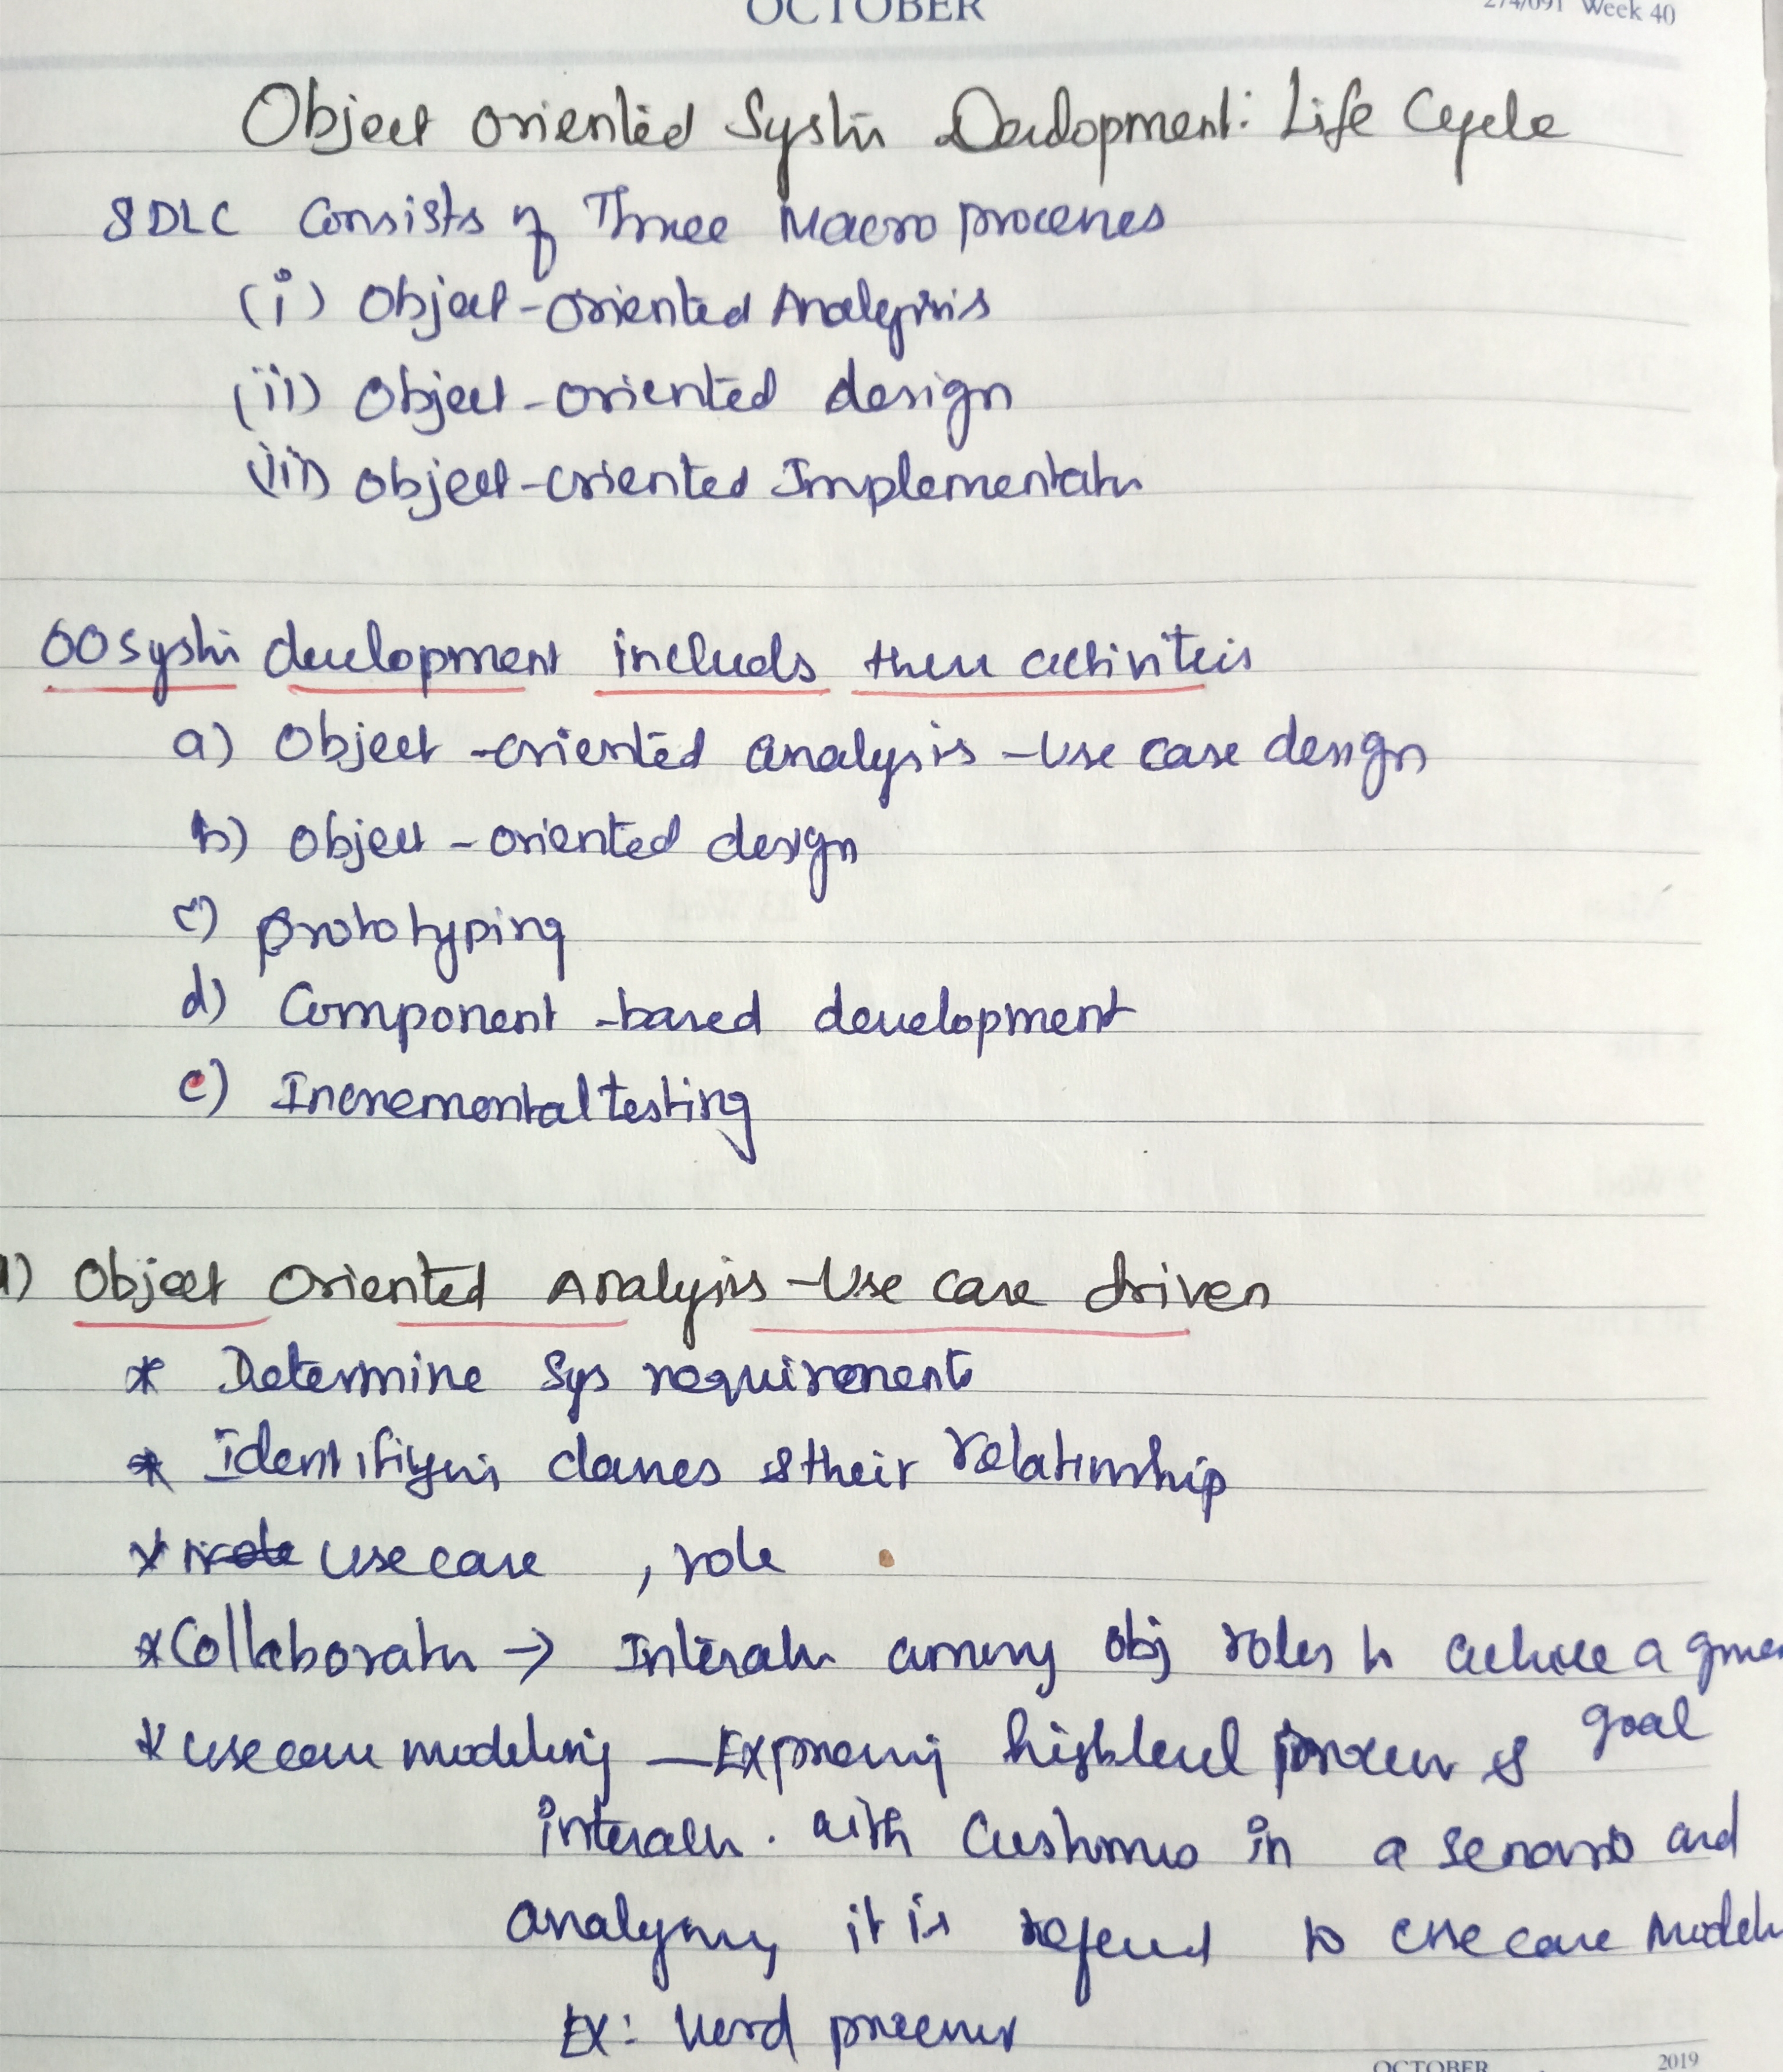 OCTOBER
274/091 Week 40
Object oriented System Development: Life Cycle
SDLC Consists of Three Macro processes
(i) Object-oriented Analysis
(ii) Object-oriented design
(iii) object-oriented Implementatn
OO system development includs these activiteis
a) Object-oriented analysis - Use case design
b) Object-oriented design
c) prototyping
d) Component-based development
e) Incremental testing
1) Object Oriented Analysis - Use case driven
* Determine Sys requirement
* Identifiying classes & their relationship
* use case , role
* Collaboratn → Interatn among obj roles to achieve a given
goal
* use case modeling — Expressing high level process &
interactn. with Customers in a senario and
analysing it is refered to use case model
Ex: Word processer
OCTOBER 2019